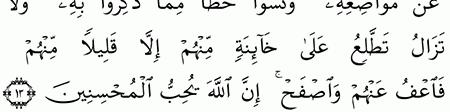 عَن مَّوَاضِعِهِۦ وَنَسُوا۟ حَظًّا مِّمَّا ذُكِّرُوا۟ بِهِۦ ۚ وَلَا
تَزَالُ تَطَّلِعُ عَلَىٰ خَآئِنَةٍ مِّنْهُمْ إِلَّا قَلِيلًا مِّنْهُمْ
فَٱعْفُ عَنْهُمْ وَٱصْفَحْ ۚ إِنَّ ٱللَّهَ يُحِبُّ ٱلْمُحْسِنِينَ ١٣